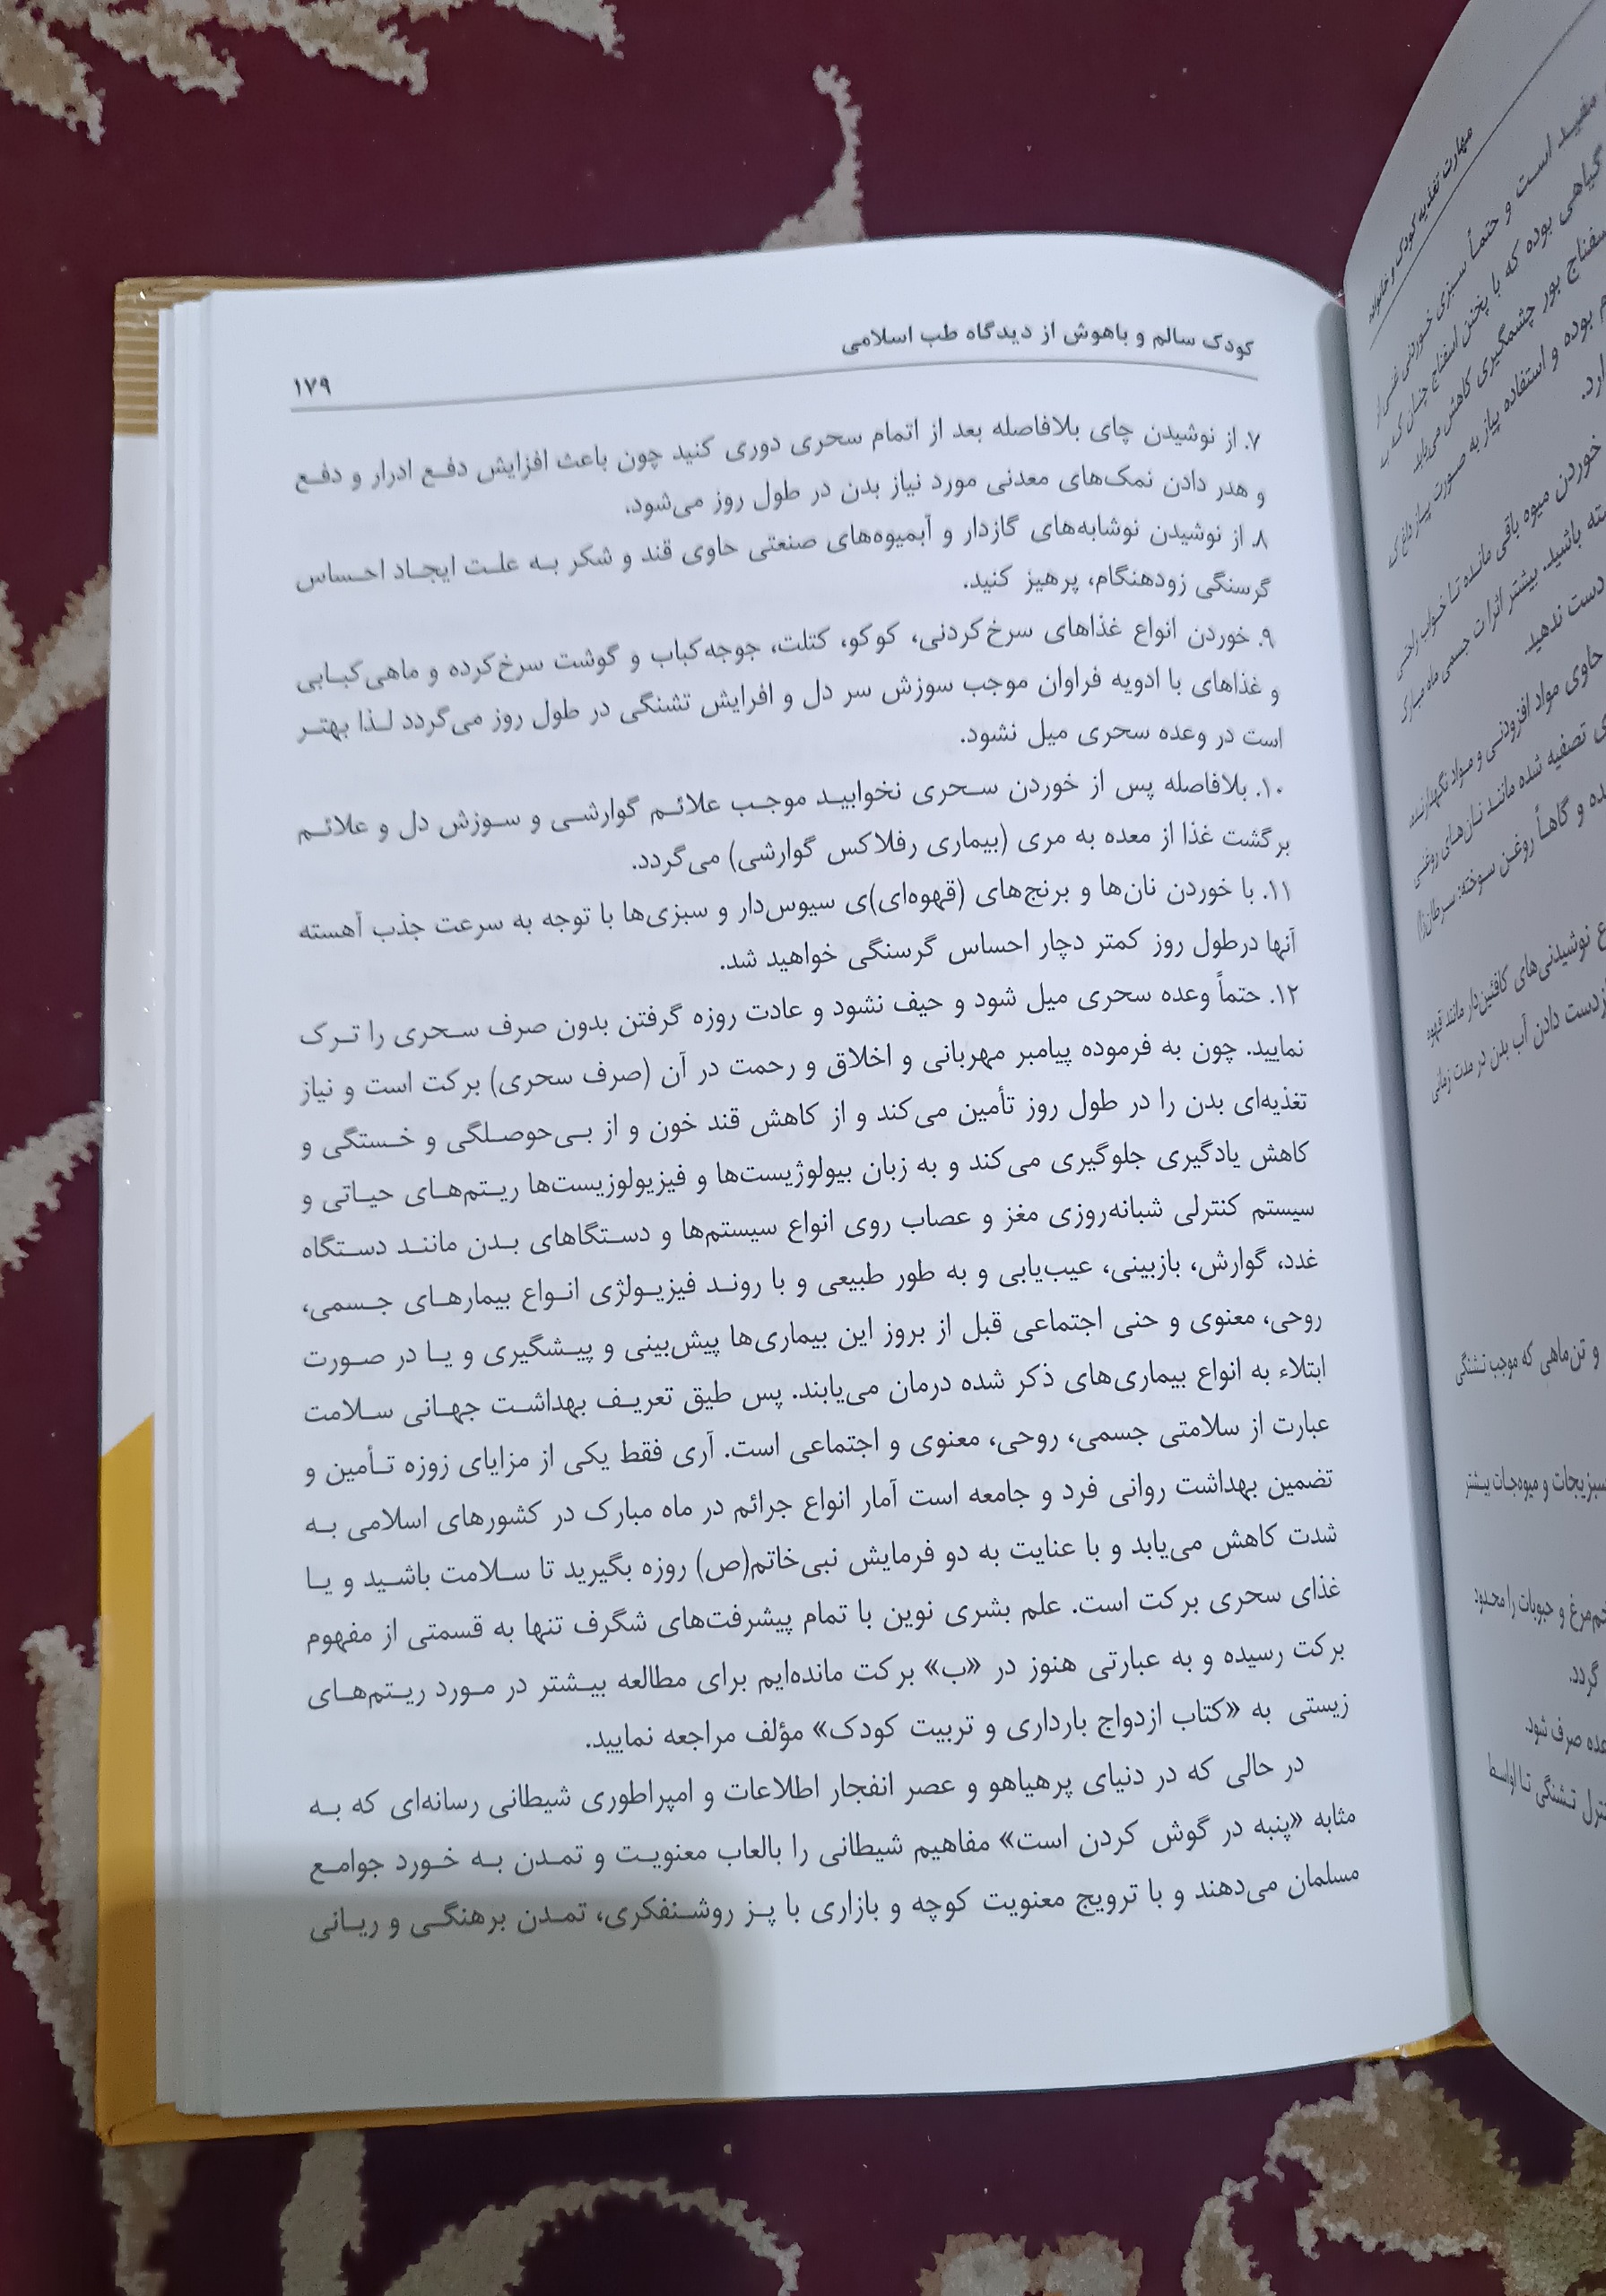 کودک سالم و باهوش از دیدگاه طب اسلامی
۱۷۹
۷. از نوشیدن چای بلافاصله بعد از اتمام سحری دوری کنید چون باعث افزایش دفع ادرار و دفع
و هدر دادن نمک‌های معدنی مورد نیاز بدن در طول روز می‌شود.
۸. از نوشیدن نوشابه‌های گازدار و آبمیوه‌های صنعتی حاوی قند و شکر به علت ایجاد احساس
گرسنگی زودهنگام، پرهیز کنید.
۹. خوردن انواع غذاهای سرخ‌کردنی، کوکو، کتلت، جوجه‌کباب و گوشت سرخ‌کرده و ماهی‌کبابی
و غذاهای با ادویه فراوان موجب سوزش سر دل و افرایش تشنگی در طول روز می‌گردد لذا بهتر
است در وعده سحری میل نشود.
۱۰. بلافاصله پس از خوردن سحری نخوابید موجب علائم گوارشی و سوزش دل و علائم
برگشت غذا از معده به مری (بیماری رفلاکس گوارشی) می‌گردد.
۱۱. با خوردن نان‌ها و برنج‌های (قهوه‌ای)ی سیوس‌دار و سبزی‌ها با توجه به سرعت جذب آهسته
آنها درطول روز کمتر دچار احساس گرسنگی خواهید شد.
۱۲. حتماً وعده سحری میل شود و حیف نشود و عادت روزه گرفتن بدون صرف سحری را ترک
نمایید. چون به فرموده پیامبر مهربانی و اخلاق و رحمت در آن (صرف سحری) برکت است و نیاز
تغذیه‌ای بدن را در طول روز تأمین می‌کند و از کاهش قند خون و از بی‌حوصلگی و خستگی و
کاهش یادگیری جلوگیری می‌کند و به زبان بیولوژیست‌ها و فیزیولوزیست‌ها ریتم‌های حیاتی و
سیستم کنترلی شبانه‌روزی مغز و عصاب روی انواع سیستم‌ها و دستگاهای بدن مانند دستگاه
غدد، گوارش، بازبینی، عیب‌یابی و به طور طبیعی و با روند فیزیولژی انواع بیمارهای جسمی،
روحی، معنوی و حنی اجتماعی قبل از بروز این بیماری‌ها پیش‌بینی و پیشگیری و یا در صورت
ابتلاء به انواع بیماری‌های ذکر شده درمان می‌یابند. پس طیق تعریف بهداشت جهانی سلامت
عبارت از سلامتی جسمی، روحی، معنوی و اجتماعی است. آری فقط یکی از مزایای زوزه تأمین و
تضمین بهداشت روانی فرد و جامعه است آمار انواع جرائم در ماه مبارک در کشورهای اسلامی به
شدت کاهش می‌یابد و با عنایت به دو فرمایش نبی‌خاتم(ص) روزه بگیرید تا سلامت باشید و یا
غذای سحری برکت است. علم بشری نوین با تمام پیشرفت‌های شگرف تنها به قسمتی از مفهوم
برکت رسیده و به عبارتی هنوز در «ب» برکت مانده‌ایم برای مطالعه بیشتر در مورد ریتم‌های
زیستی به «کتاب ازدواج بارداری و تربیت کودک» مؤلف مراجعه نمایید.
در حالی که در دنیای پرهیاهو و عصر انفجار اطلاعات و امپراطوری شیطانی رسانه‌ای که به
مثابه «پنبه در گوش کردن است» مفاهیم شیطانی را بالعاب معنویت و تمدن به خورد جوامع
مسلمان می‌دهند و با ترویج معنویت کوچه و بازاری با پز روشنفکری، تمدن برهنگی و ریانی
مهارت تغذیه کودک و خانواده
مفید است و حتماً سبزی خوردنی غنی از
گیاهی بوده که با پختن اسفناج چنان که به
اسفناج بور چشمگیری کاهش می‌یابد
م بوده و استفاده پیاز به صورت پیاز داغ ک
ارد.
خوردن میوه باقی مانده تا خواب راحتی
باشید. بیشتر اثرات جسمی ماه مبارک
دست ندهید.
حاوی مواد افزودنی و مواد نگهدارنده
تصفیه شده مانند نان‌های روغنی
ده و گاهاً روغن سوخته: سرطان‌زا)
ع نوشیدنی‌های کافئین‌دار مانند قهوه
دست دادن آب بدن در مدت زمانی
و تن‌ماهی که موجب تشنگی
سبزیجات و میوه‌جات بیشتر
تخم‌مرغ و حبوبات را محدود
گردد.
عده صرف شود.
کنترل تشنگی تا اواسط